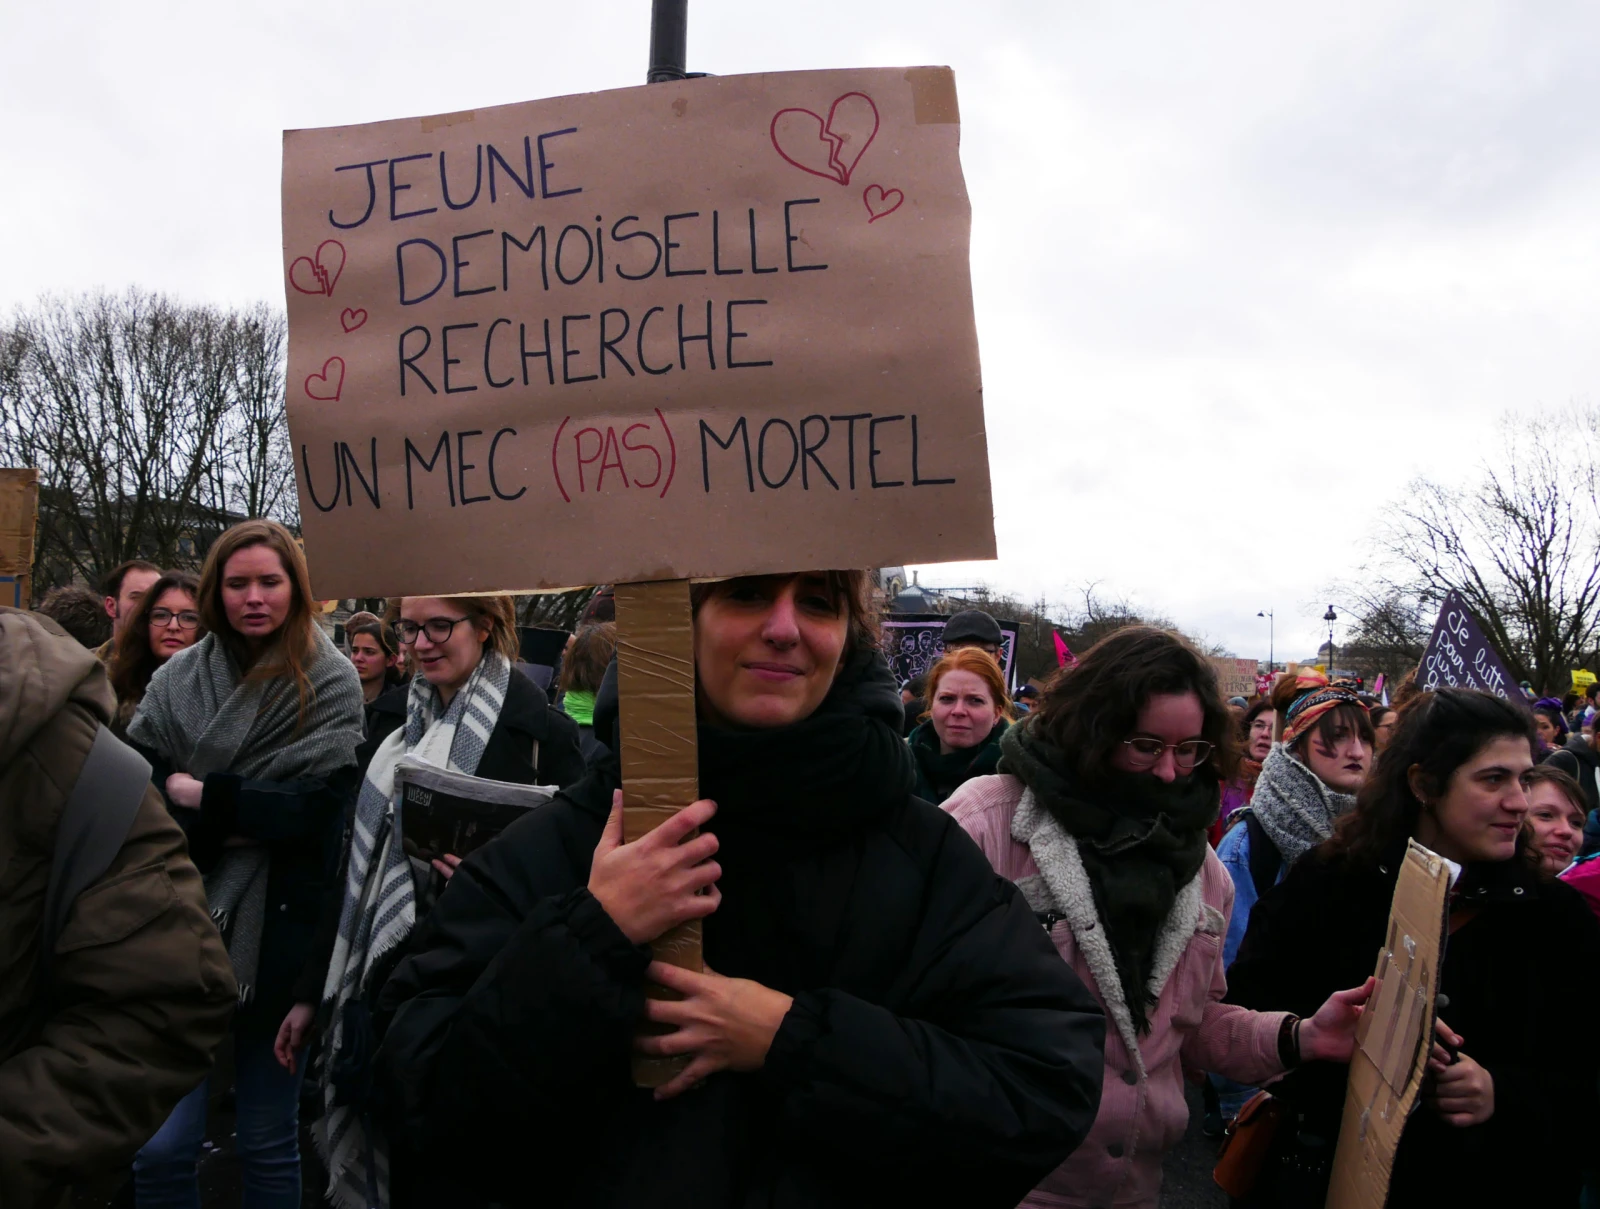 JEUNE
DEMOiSELLE
RECHERCHE
UN MEC (PAS) MORTEL
Je lutte
pour m